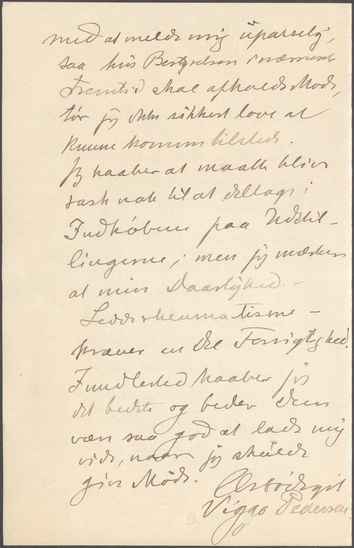 med at melde mig upasselig,
saa hvis Bestyrelsen i nærmeste
Fremtid skal afholde Møde,
tør jeg ikke sikkert love at
kunne komme tilstede.
Jeg haaber at maatte blive
rask nok til at deltage i
Indkøbene paa Udstil-
lingerne, men jeg mærker
at min Daarlighed –
Ledderheumatisme –
kræver en Del Forsigtighed.
Imidlertid haaber jeg
det bedste og beder Dem
være saa god at lade mig
vide, naar jeg skulde
give Møde.
Ærbødigst
Viggo Pedersen